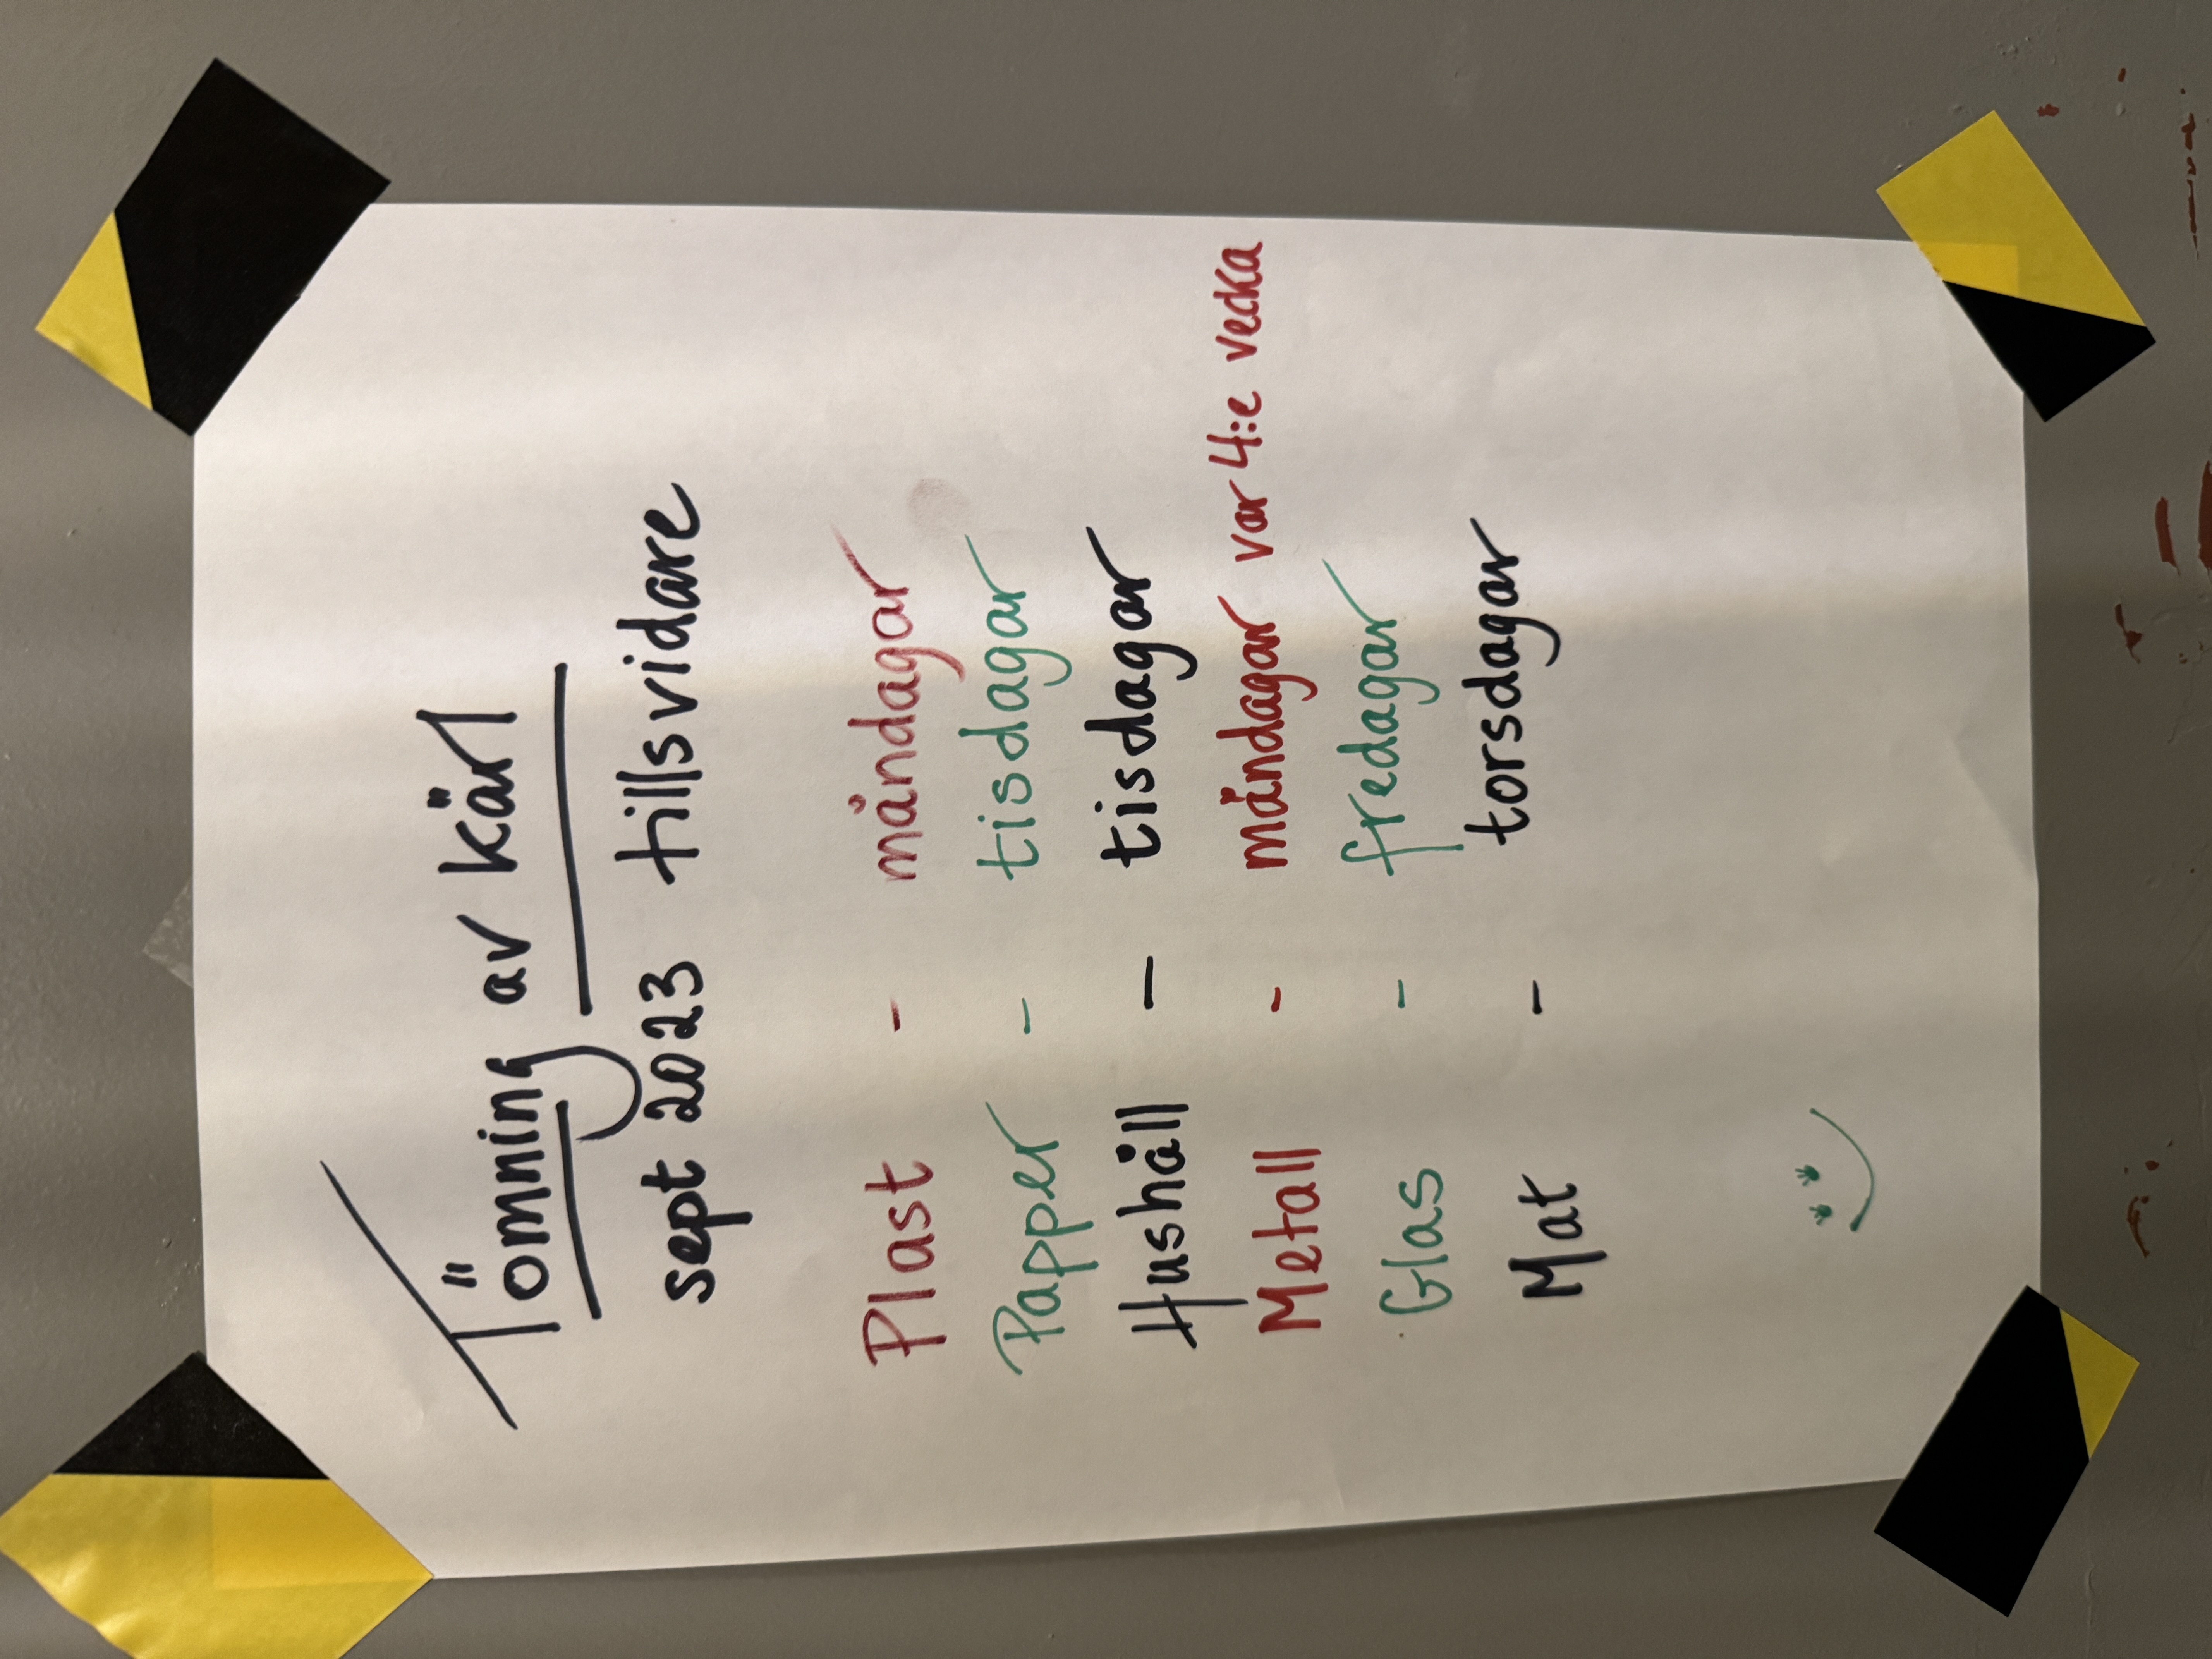 Tömning av kärl
sept 2023 tillsvidare
Plast - måndagar
Papper - tisdagar
Hushåll - tisdagar
Metall - måndagar var 4:e vecka
Glas - fredagar
Mat - torsdagar